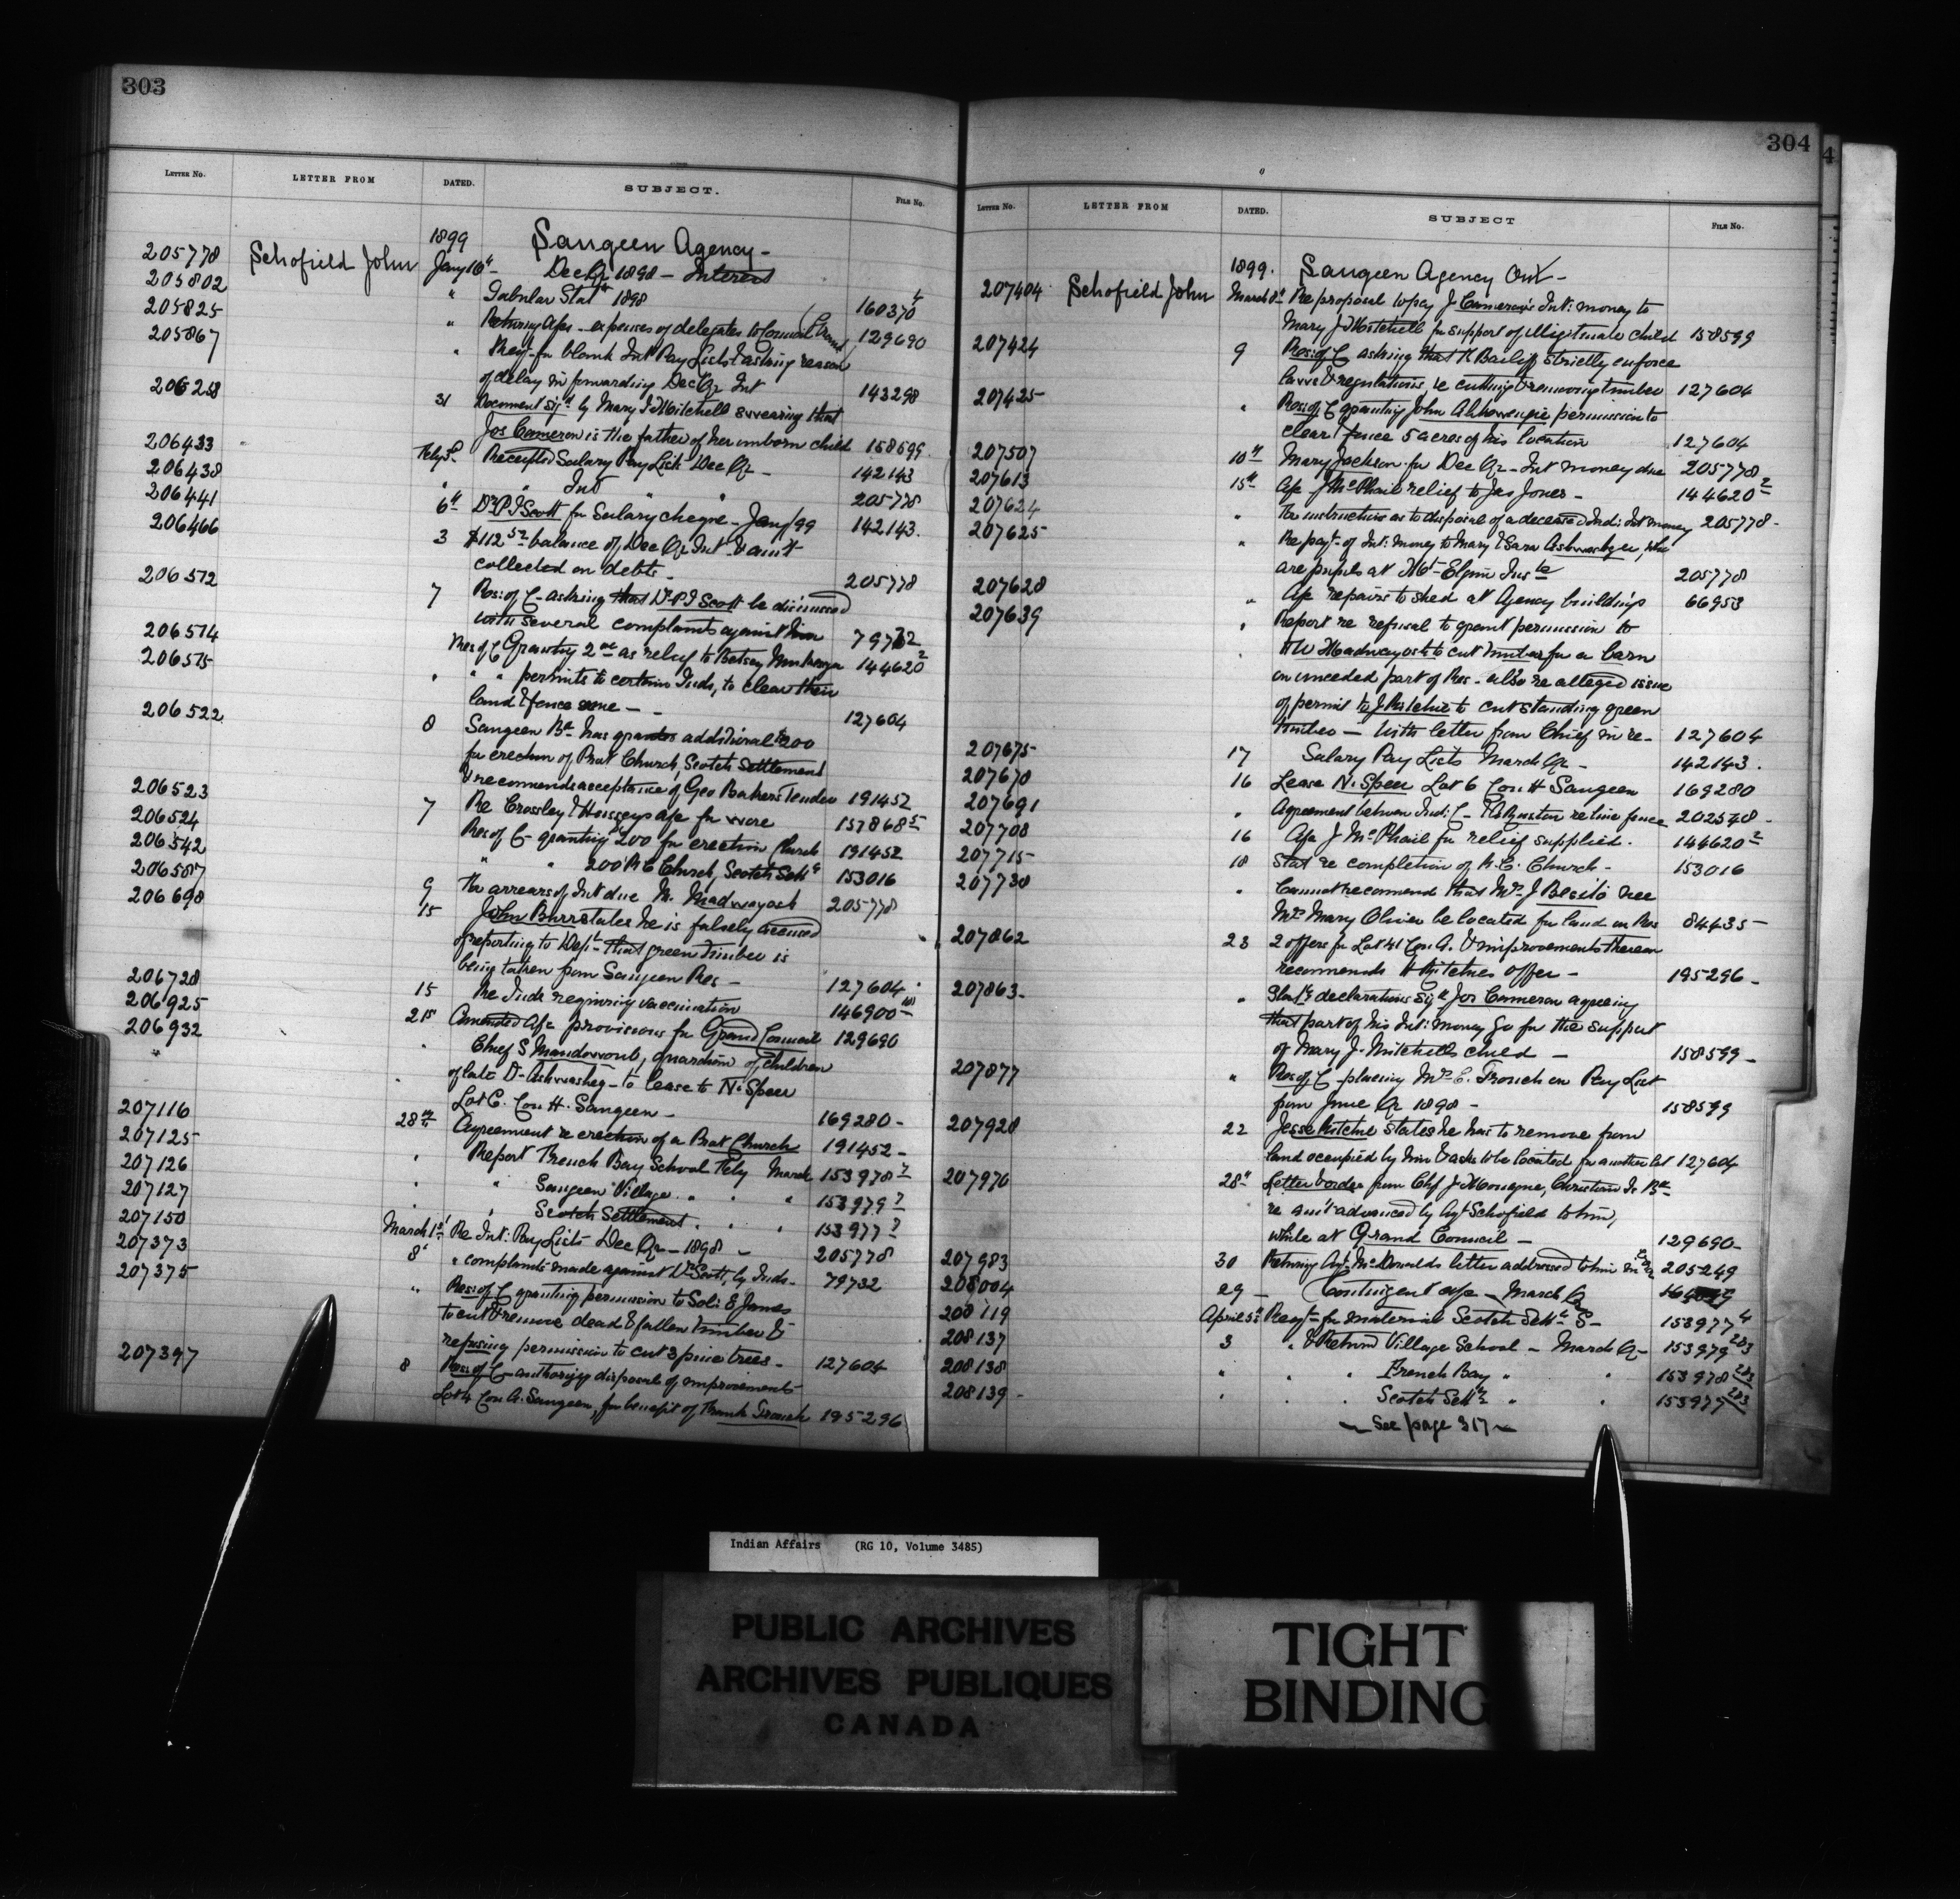 303
LETTER NO. LETTER FROM DATED. SUBJECT. FILE NO.
1899 Saugeen Agency -
205778 Schofield John Jany 16th Dec Qr 1898 - Interest
205802 " Tabular Statt 1898 160370 4
205825 " Returning Afcs - expenses of delegates to Grand Council 129690
205867 " Reqt for blank Int Pay Lists & asking reason
of delay in forwarding Dec Qr Int 143298
206258 31 Document sigd by Mary J Mitchell swearing that
Jos Cameron is the father of her unborn child 158599
206433 Feby 3d Receipted Salary Pay List Dec Qr - 142143
206438 " " Int " " 205778
206441 6th Dr P J Scott for Salary cheque - Jany/99 142143.
206466 3 $112.52 balance of Dec Qr Int & amt
collected on debts - 205778
206572 7 Res: of C - asking that Dr P J Scott be dismissed
with several complaints against him 79732
206574 Res of C Granting 2.00 as relief to Betsey 144620 2
206575 " " " permits to certain Inds, to clear their
land & fence same - - 127604
206522 8 Saugeen Bd has granted additional $200
for erection of Prot Church, Scotch Settlement
& recommends acceptance of Geo Bakers Tender 191452
206523 7 Re Crossley & Housseys afc for wire 157868 5
206524 Res of C - granting 200 for erection Church 191452
206542 " " 200 R C Church, Scotch Settt 153016
206587 9 For arrears of Int due M. Madwayosh 205778
206698 15 John Burr states he is falsely accused
of reporting to Dept - that green timber is
being taken from Saugeen Res - 127604
206728 15 Re Inds requiring vaccination 146900
206925 25 Amended Afc provisions for Grand Council 129690
206932 " Chief S Mandowoub, guardian of children
of late D - Ashwasheg - to lease to N. Speer
Lot 6. Con H. Saugeen - 169280 -
207116 28th Agreement re erection of a Prot Church 191452 -
207125 " Report French Bay School Feby March 153978 2
207126 " " Saugeen Village " " " 153979 2
207127 " " Scotch Settlement " " " 153977 2
207150 March 1st Re Int: Pay Lists Dec Qr - 1898 - 205778
207373 8 " complaints made against Dr Scott, by Inds - 79732
207375 " Res: of C granting permission to Sol: E James
to cut & remove dead & fallen timber &
refusing permission to cut 3 pine trees - 127604
207397 8 Res: of C - authorizg disposal of improvements
Lot 4 Con A. Saugeen, for benefit of Frank Trouch 195296
304
LETTER NO. LETTER FROM DATED. SUBJECT FILE NO.
1899. Saugeen Agency Ont -
207404 Schofield John March 8th Re proposal to pay J Cameron's Int: money to
Mary J Mitchell for support of illegitimate child 158599
207424 9 Res: of C asking that R Bailiff strictly enforce
laws & regulations re cutting & removing timber 127604
207425 " Res: of C granting John permission to
clear & fence 5 acres of his location 127604
207507 10th Mary Jackson for Dec Qr - Int money due 205778
207613 15th Afc J McPhail relief to Jas Jones - 144620 2
207624 " For instructions as to disposal of a deceased Ind: Int money 205778 -
207625 " Re payt of Int: money to Mary & Sara Ashwashgee, who
are pupils at Mt - Elgin Inste 205778
207628 " Afc repairs to shed at Agency buildings 66953
207639 " Report re refusal to grant permission to
H W Madwayosh to cut timber for a barn
on unceded part of Res - also re alleged issue
of permit to J Ritchie to cut standing green
timber - with letter from Chief in re - 127604
207675 17 Salary Pay Lists March Qr - 142143.
207678 16 Lease N. Speer Lot 6 Con H Saugeen 169280
207691 " Agreement between Ind: C - re line fence 202578 -
207708 16 Afc J McPhail for relief supplied. 144620 2
207715 18 Statt re completion of R. C. Church - 153016
207730 " Cannot recommend that Mrs J Besito nee
Mrs Mary Oliver be located for land on Res 84435 -
207862 23 2 offers for Lot 41 Con A. & improvements thereon
recommends H Ritchies offer - 195296 -
207863. " Staty declarations sigd Jos Cameron agreeing
that part of his Int: money go for the support
of Mary J. Mitchells child - 158599 -
207877 " Res of C - placing Mrs E. Trouch on Pay List
from June Qr 1898 - 158599
207928 22 Jesse Ritchie states he has to remove from
land occupied by him & asks to be located for another lot 127604
207976 28th Letter & order from Chf J Mouague, Christian Is Bd
re amt advanced by Agt Schofield to him,
while at Grand Council - 129690 -
207983 30 Returning Agt McDonalds letter addressed to him in 205249
208004 29 - Contingent afc - March Qr
208119 April 5th Reqt for material Scotch Settt S - 153977 4
208137 3 " & Return Village School - March Qr - 153979 2&3
208138 " " French Bay " " 153978 2&3
208139 - " " Scotch Settt " " 153977 2&3
- See page 317 -
Indian Affairs (RG 10, Volume 3485)
PUBLIC ARCHIVES
ARCHIVES PUBLIQUES
CANADA
TIGHT
BINDING